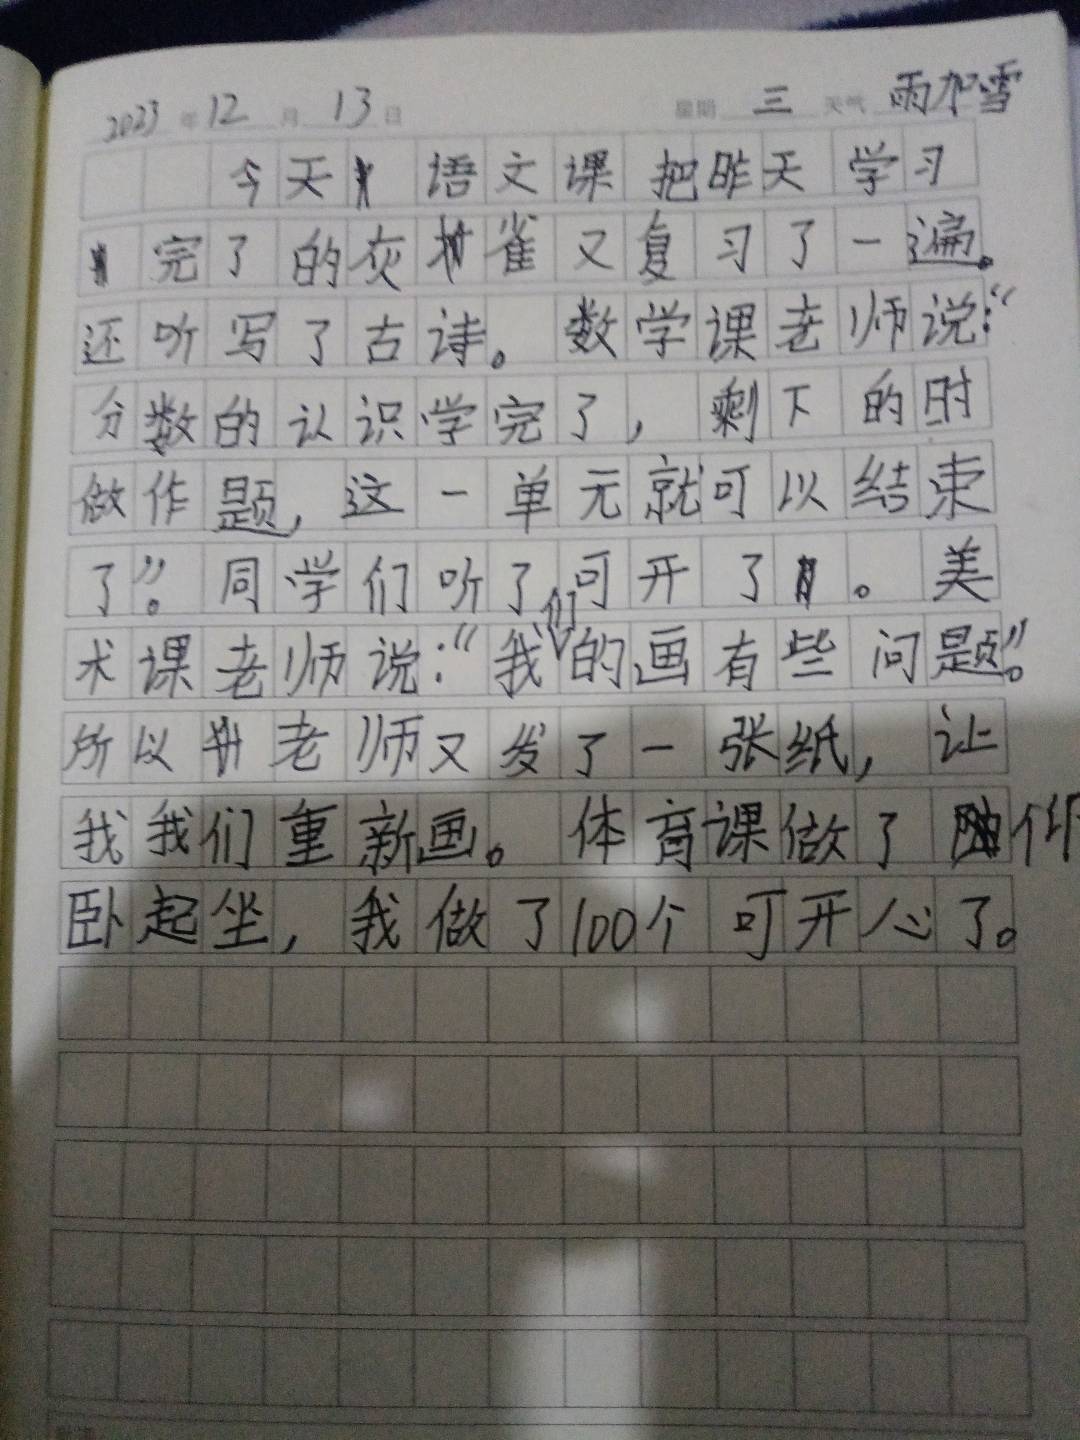 2023年12月13日 星期三 天气雨加雪
今天语文课把昨天学习
完了的灰雀又复习了一遍。
还听写了古诗。数学课老师说:“
分数的认识学完了,剩下的时
做作题,这一单元就可以结束
了”。同学们听了可开了。美
术课老师说:“我们的画有些问题”。
所以老师又发了一张纸,让
我我们重新画。体育课做了仰
卧起坐,我做了100个可开心了。